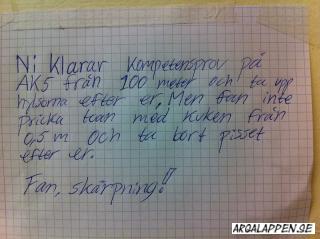 Ni Klarar Kompetensprov på
AK5 från 100 meter och ta upp
hylsorna efter er, Men fan inte
pricka toan med kuken från
0,5 m och ta bort pisset
efter er.
Fan, skärpning!!
ARGALAPPEN.SE